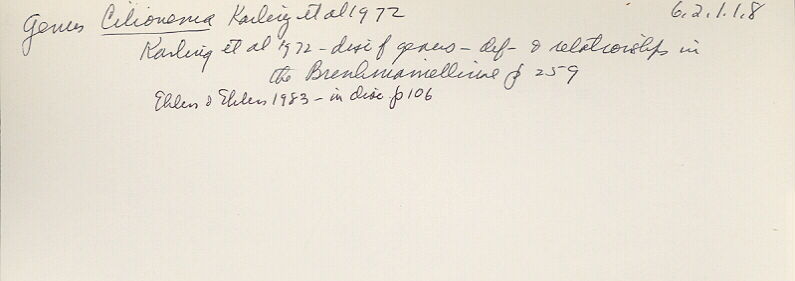 Genus Cilionema Karling et al 1972 6.2.1.1.8
Karling et al '72 - disc of genus - def - & relationships in
the Bresslauanellinae p 259
Ehlers & Ehlers 1983 - in disc p 106